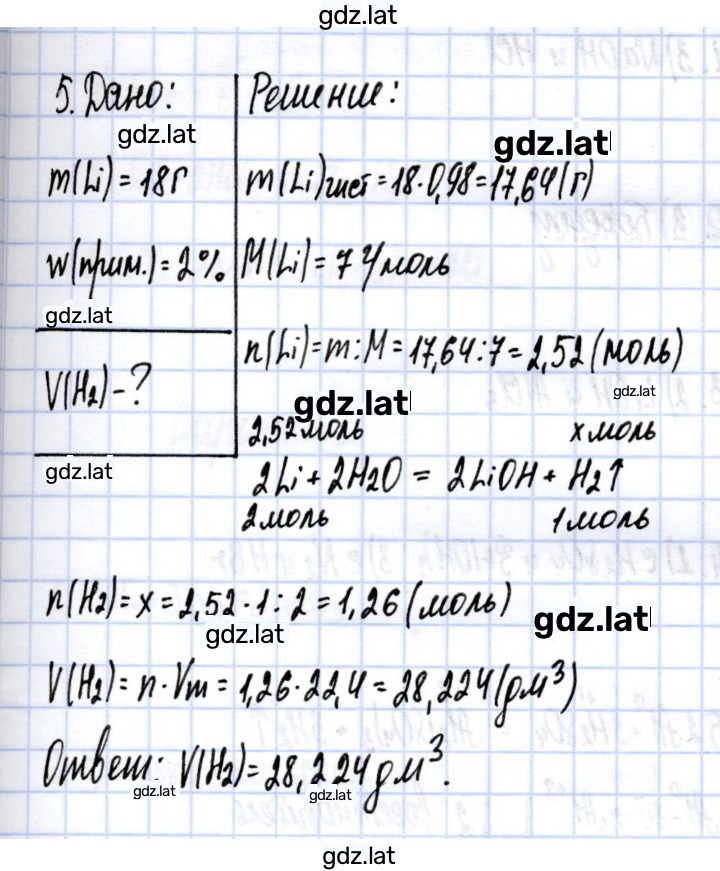 gdz.lat
5. Дано:
Решение:
gdz.lat
gdz.lat
m(Li) = 18 г
m(Li)чист = 18·0,98 = 17,64 (г)
w(прим.) = 2%
M(Li) = 7 г/моль
gdz.lat
n(Li) = m : M = 17,64 : 7 = 2,52 (моль)
V(H2) - ?
gdz.lat
gdz.lat
2,52 моль x моль
gdz.lat
2Li + 2H2O = 2LiOH + H2↑
2 моль 1 моль
n(H2) = x = 2,52·1 : 2 = 1,26 (моль)
gdz.lat
gdz.lat
V(H2) = n·Vm = 1,26·22,4 = 28,224 (дм³)
Ответ: V(H2) = 28,224 дм³.
gdz.lat
gdz.lat
gdz.lat